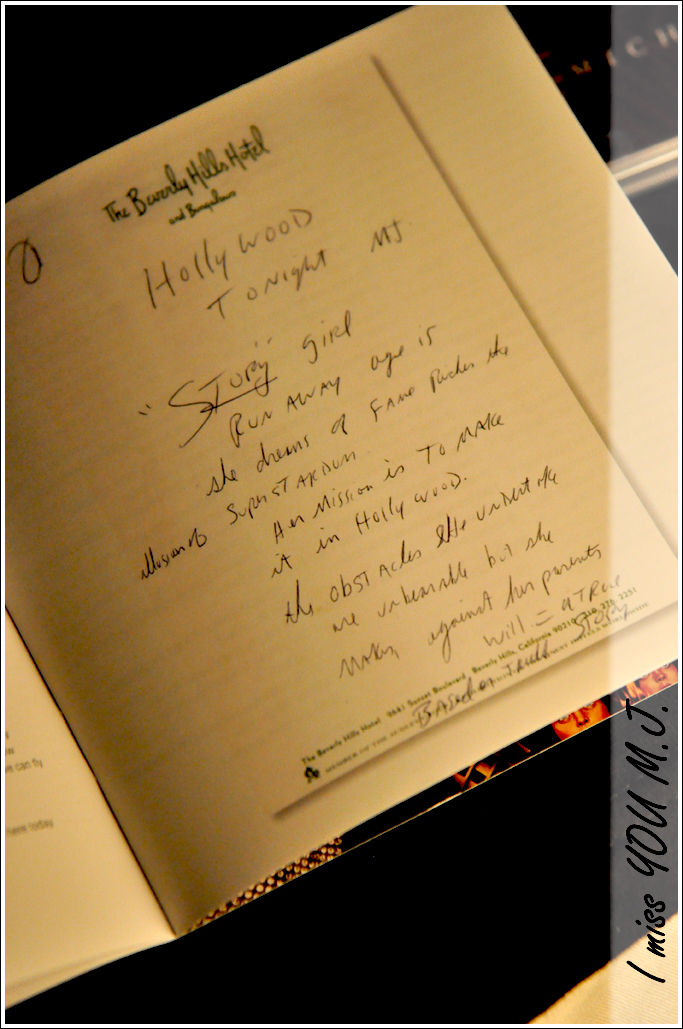 MICH
The Beverly Hills Hotel
and Bungalows
Hollywood
Tonight MJ
"Story" girl
RUN AWAY age is
she dreams of FAME Pushes the
illusion of SuperSTARDUM
Her Mission is To MAKE
it in Hollywood.
the OBSTAcles SHe undertake
are unbearable but she
Makes against her parents
will = a TRue
Story
Based on Truth
The Beverly Hills Hotel 9641 Sunset Boulevard Beverly Hills, California 90210 310 276 2251
MEMBER OF THE
can fly
here today
I miss YOU M.J.